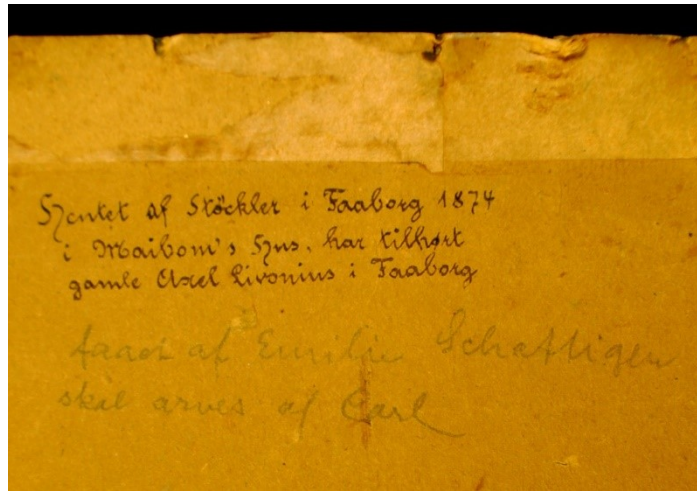 Hentet af Stöckler i Faaborg 1874
i Maibom's Hus, har tilhørt
gamle Axel Livonius i Faaborg
faaet af Emilie
skal arves af Carl